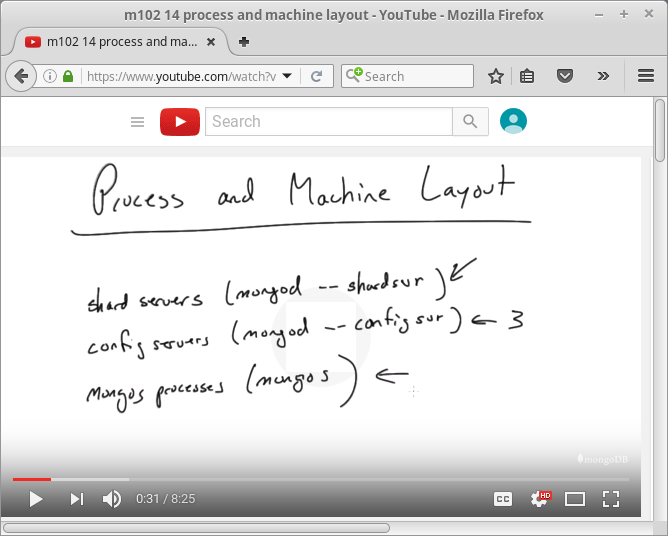 m102 14 process and machine layout - YouTube - Mozilla Firefox
m102 14 process and ma...
https://www.youtube.com/watch?v
Search
Search
Process and Machine Layout
shard servers (mongod -- shardsvr)
config servers (mongod -- configsvr) ← 3
Mongos processes (mongos) ←
mongoDB
0:31 / 8:25
CC
HD